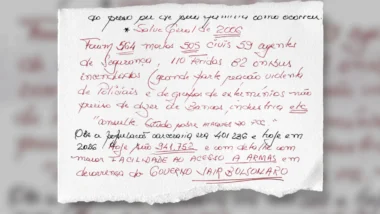 * Salve Geral de 2006
Foram 564 mortos 505 civis 59 agentes
de segurança, 110 feridos 82 onibus
incendiados (grande parte reação violenta
de Policiais e de grupos de exterminios não
preciso de dizer de Bancos, industria etc
"consulte Estudo sobre massacre do PCC"
Obs a população carceraria na 401.236 e hoje em
2026 Hoje são 941.752 e com detalhe com
maior FACILIDADE AO ACESSO A ARMAS em
do GOVERNO JAIR BOLSONARO